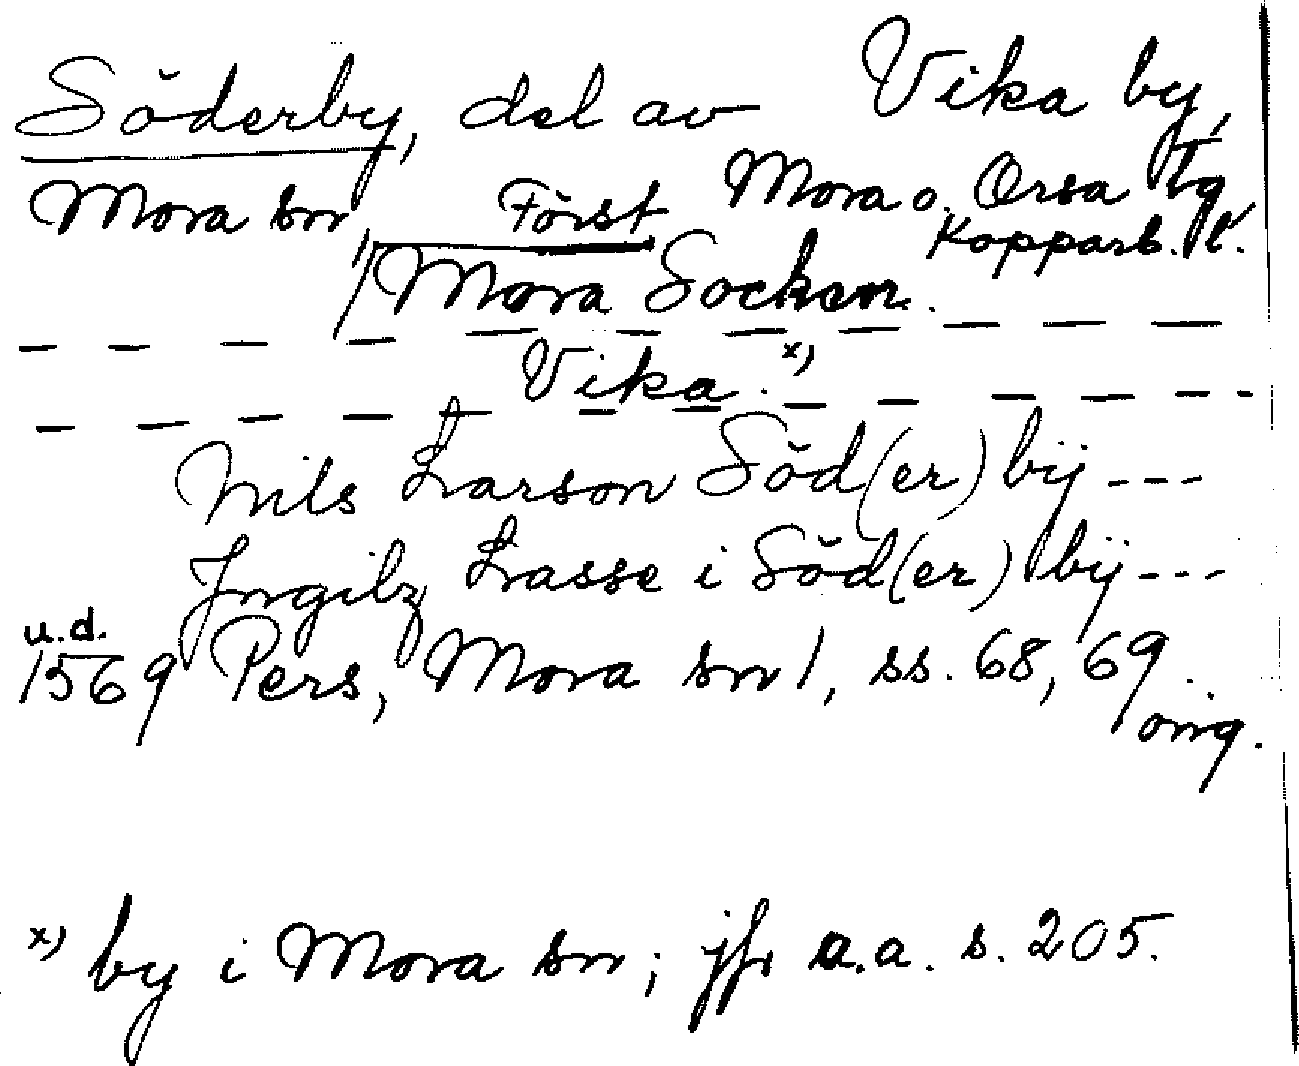 Söderby, del av Vika by,
Mora sn, Först Mora o. Orsa tg
Kopparb. l.
Mora Socken.
Vika. x)
Nils Larson Söd(er)bÿ ---
Jngilz Lasse i Söd(er)bÿ ---
u.d.
1569 Pers, Mora sn 1, ss. 68, 69
orig.
x) by i Mora sn; jfr a.a. s. 205.